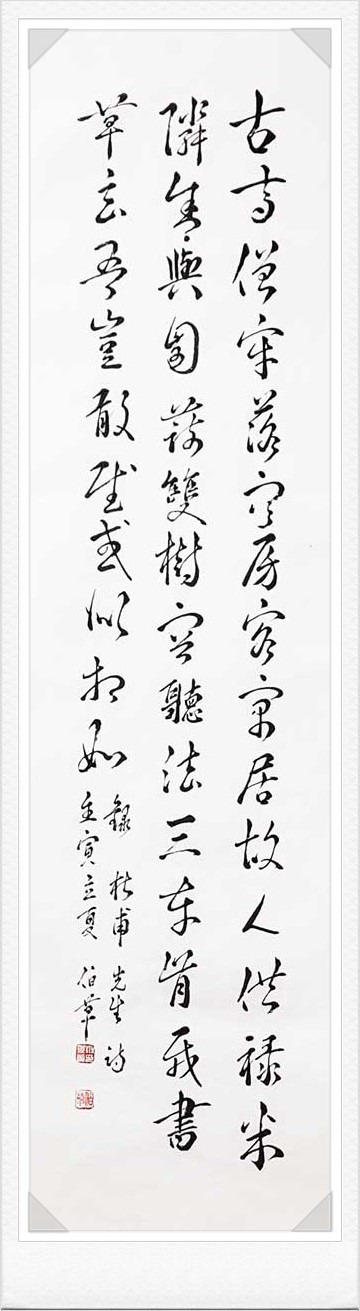 古寺僧牢落空房客寓居故人供祿米
隣舍與園蔬雙樹容聽法三車肯載書
草玄吾豈敢賦或似相如
錄杜甫先生詩
壬寅立夏 伯草